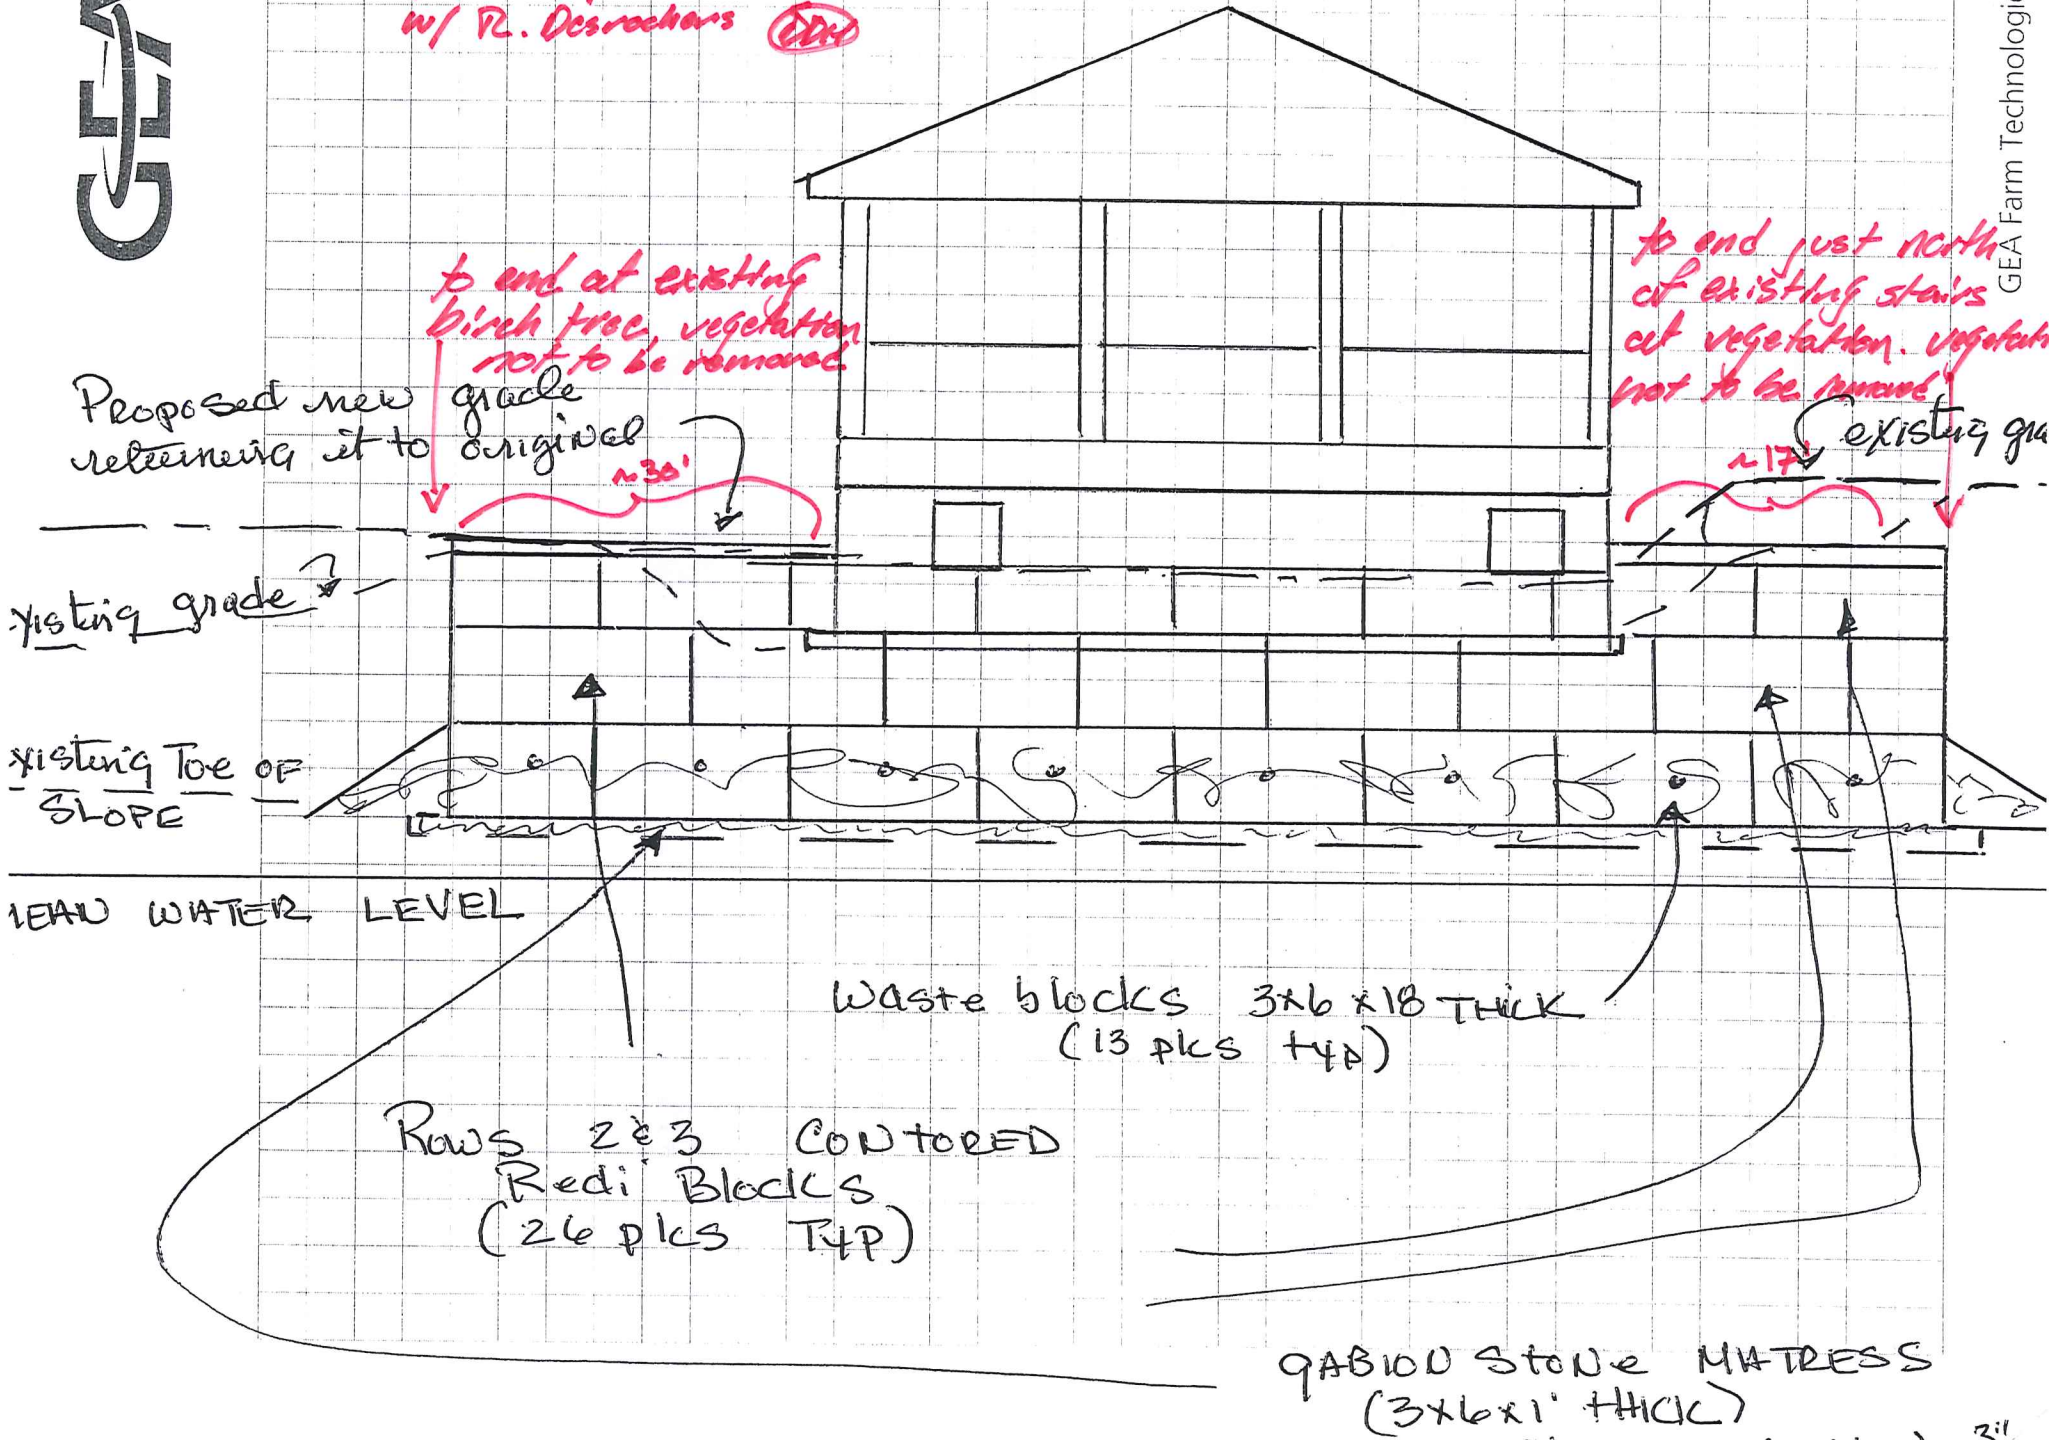 GEA
w/ R. Desrochers
GEA Farm Technologi
to end at existing
birch tree, vegetation
not to be removed
to end just north
of existing stairs
at vegetation. vegetati
not to be removed
Proposed new grade
returning it to original
~30'
~17'
existing gra
xisting grade
xisting Toe OF
SLOPE
MEAN WATER LEVEL
Waste blocks 3x6 x18 THICK
(13 pks typ)
Rows 2 & 3 CONTORED
Redi Blocks
(26 pks Typ)
GABION STONE MATRESS
(3x6x1' tHICK)